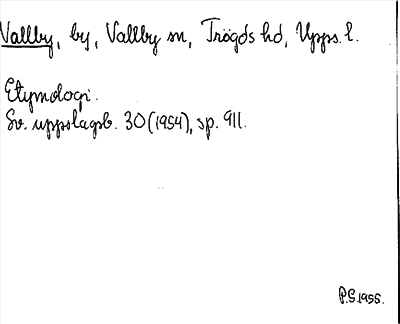 Vallby, by, Vallby sn, Trögds hd, Upps. l.
Etymologi.
Sv. uppslagsb. 30 (1954), sp. 911.
P.S. 1955.